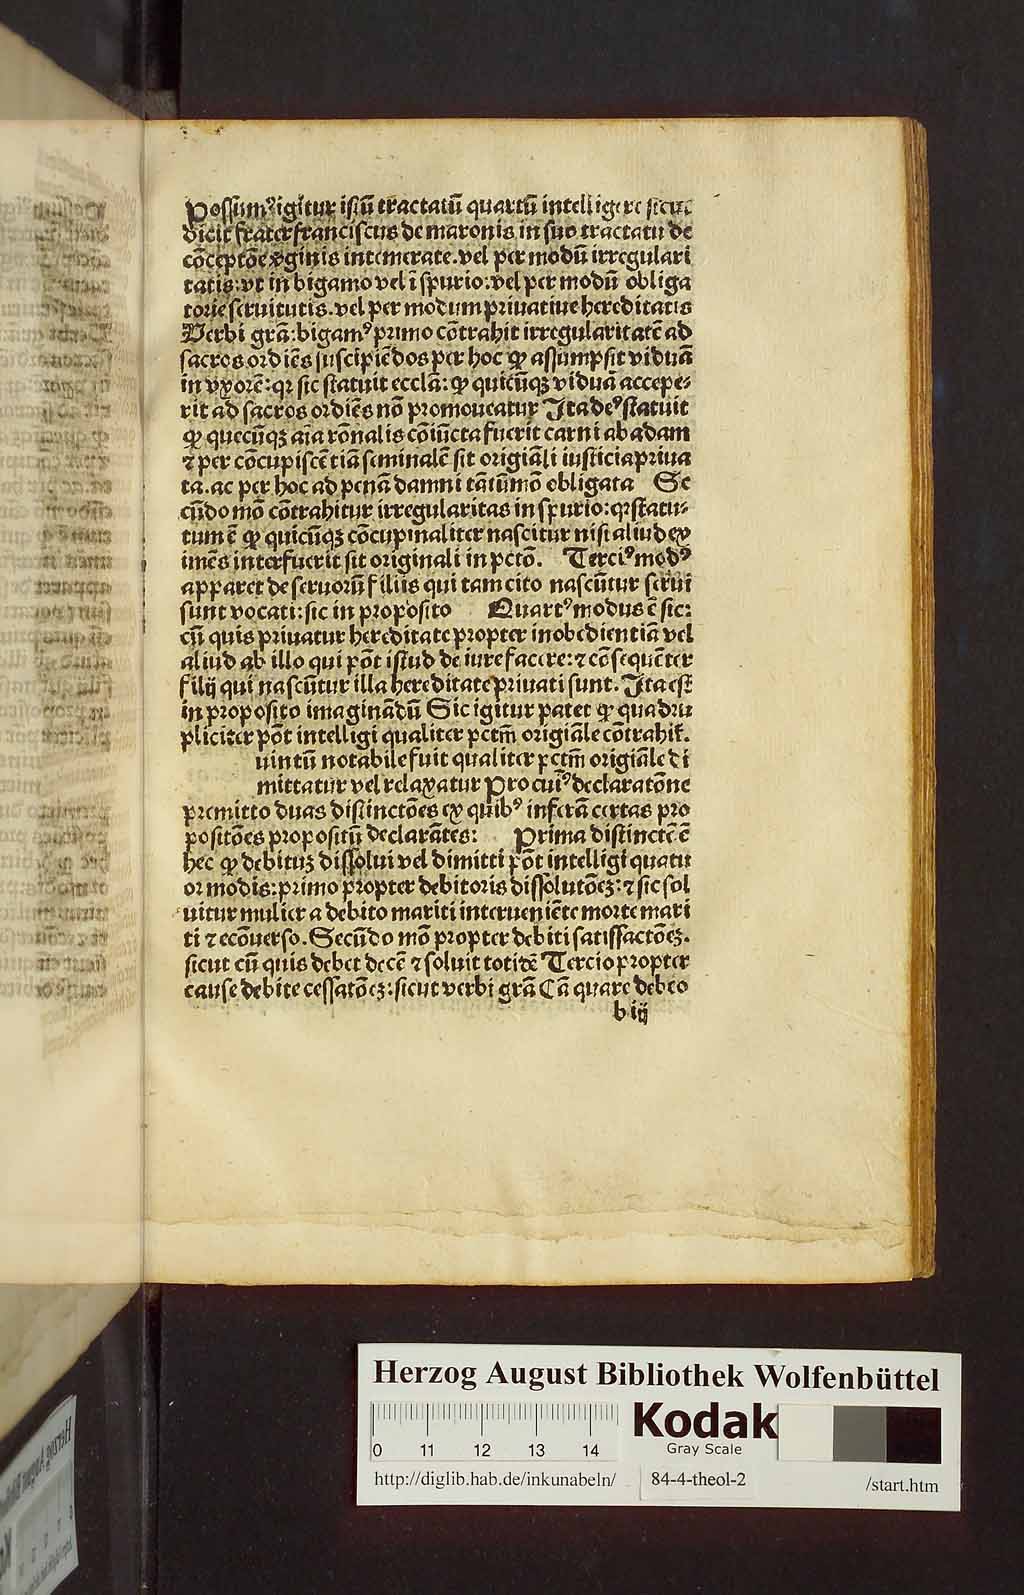 Possumꝰ igitur istū tractatū quartū intelligere sicut
dicit frater franciscus de maronis in suo tractatu de
cōceptōe v̓ginis intemerate. vel per modū irregulari
tatis: vt in bigamo vel ī spurio: vel per modū obliga
torie seruitutis. vel per modum priuatiue hereditatis
Verbi grā: bigamꝰ primo cōtrahit irregularitatē ad
sacros ordiēs suscipiēdos per hoc ꝙ assumpsit viduā
in vxorē: qꝛ sic statuit ecclā: ꝙ quicūqꝫ viduā accepe⸗
rit ad sacros ordiēs nō promoueatur Ita deꝰ statuit
ꝙ quecūqꝫ aīa rōnalis cōiūcta fuerit carni ab adam
⁊ per cōcupiscētiā seminalē sit origiāli iusticia priua
ta. ac per hoc ad penā damni tātūmō obligata Se
cūdo mō cōtrahitur irregularitas in spurio: qꝛ statu⸗
tum ē ꝙ quicūqꝫ cōcupinaliter nascitur nisi aliud ex
imēs interfuerit sit originali in pctō. Terciꝰ modꝰ
apparet de seruorū filiis qui tam cito nascūtur serui
sunt vocati: sic in proposito Quartꝰ modus ē sic:
cū quis priuatur hereditate propter inobedientiā vel
aliud ab illo qui pōt istud de iure facere: ⁊ cōsequēter
filij qui nascūtur illa hereditate priuati sunt. Ita est
in proposito imaginādū Sic igitur patet ꝙ quadru
pliciter pōt intelligi qualiter pctm̄ origiāle cōtrahit̄.
uintū notabile fuit qualiter pctm̄ origiāle di
mittatur vel relaxatur Pro cuiꝰ declaratōne
premitto duas distinctōes ex quibꝰ inferā certas pro
positōes propositū declarātes: Prima distinctē ē
hec ꝙ debituꝫ dissolui vel dimitti pōt intelligi quatu
or modis: primo propter debitoris dissolutōeꝫ: ⁊ sic sol
uitur mulier a debito mariti interueniēte morte mari
ti ⁊ ecōuerso. Secūdo mō propter debiti satisfactōeꝫ.
sicut cū quis debet decē ⁊ soluit totidē Tercio propter
cause debite cessatōeꝫ: sicut verbi grā Cā quare debeo
b iij
Herzog August Bibliothek Wolfenbüttel
0 11 12 13 14
Kodak
Gray Scale
http://diglib.hab.de/inkunabeln/ 84-4-theol-2 /start.htm